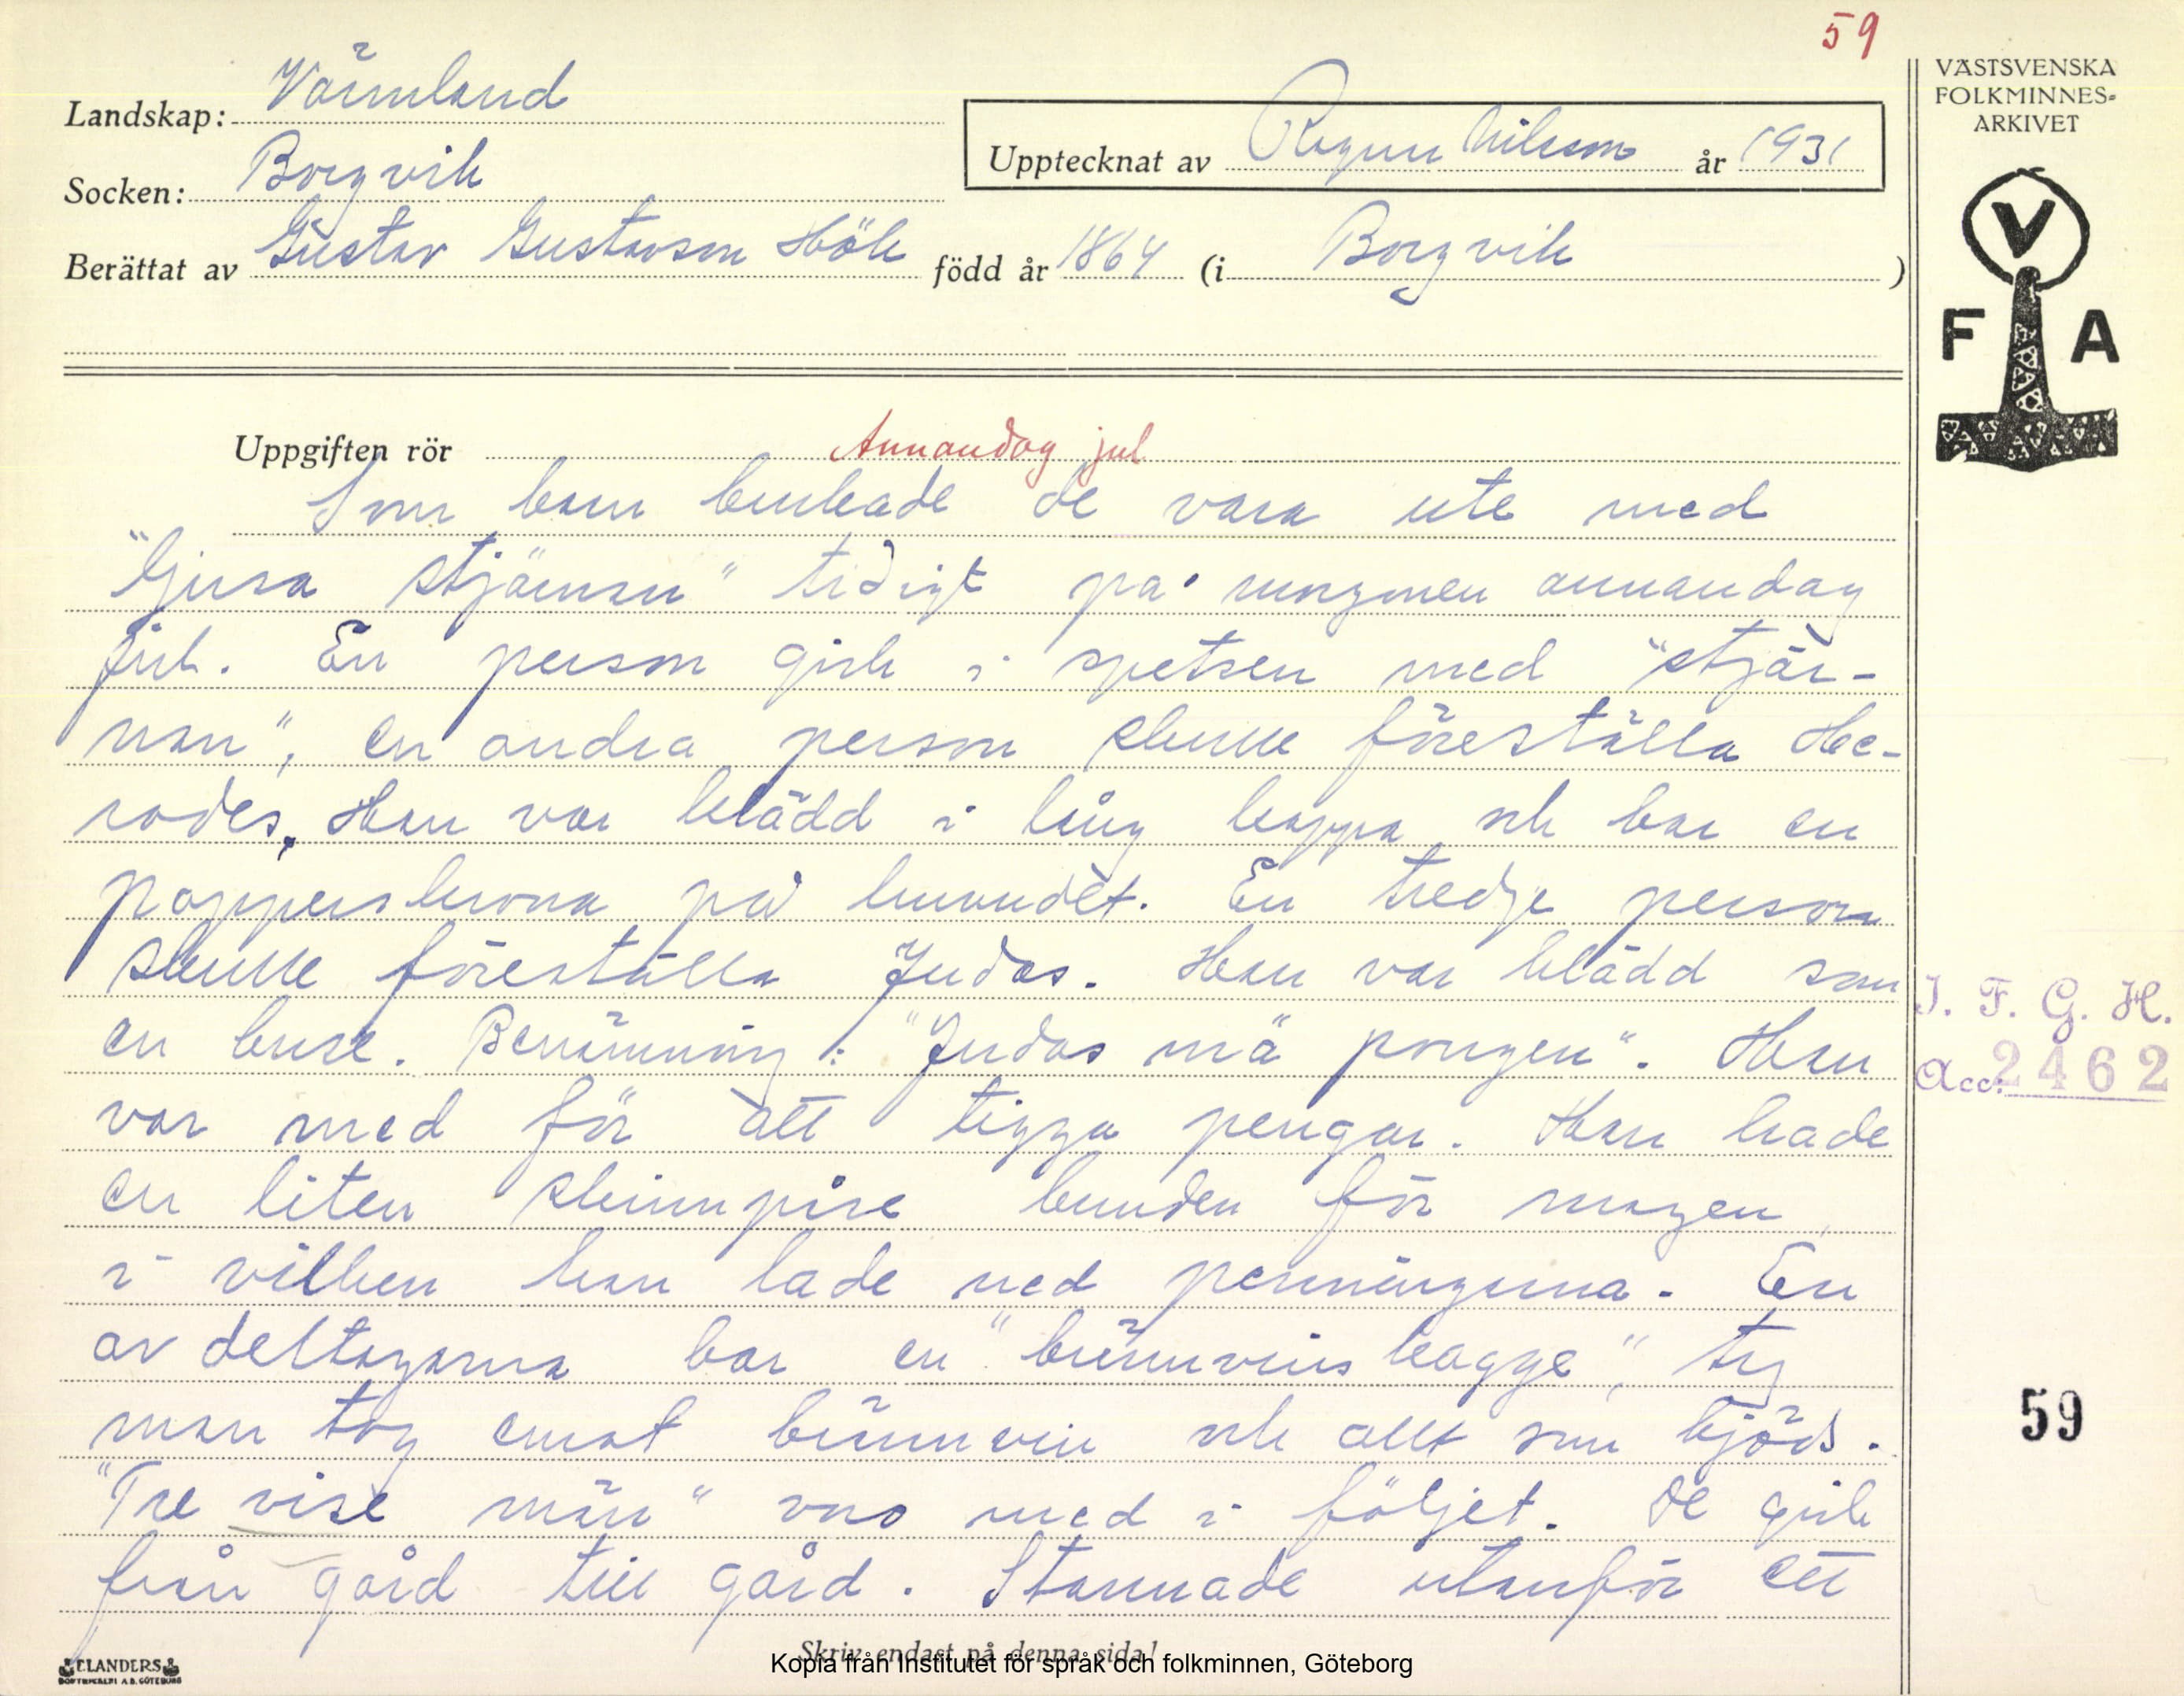 59
Landskap: Värmland
Socken: Borgvik
Berättat av Gustav Gustavson Hök född år 1864 (i Borgvik)
Upptecknat av Ragnar Nilsson år 1931
VÄSTSVENSKA
FOLKMINNES-
ARKIVET
V
F A
Uppgiften rör Annandag jul
Som barn brukade de vara ute med
"ljusa stjärnan" tidigt på morgonen annandag
jul. En person gick i spetsen med "stjär-
nan", en andra person skulle föreställa He-
rodes. Han var klädd i lång kappa och bar en
papperskrona på huvudet. En tredje person
skulle föreställa Judas. Han var klädd som
en buse. Benämning: "Judas mä pongen". Han
var med för att tigga pengar. Han hade
en liten skinnpåse bunden för magen,
i vilken han lade ned penningarna. En
av deltagarna bar en "brännvinskagge", ty
man tog emot brännvin och allt som bjöds.
"Tre vise män" voro med i följet. De gick
från gård till gård. Stannade utanför ett
I. F. G. H.
Acc. 2462
59
Skriv endast på denna sida!
Kopia från Institutet för språk och folkminnen, Göteborg
ELANDERS
BOKTRYCKERI A.B. GÖTEBORG